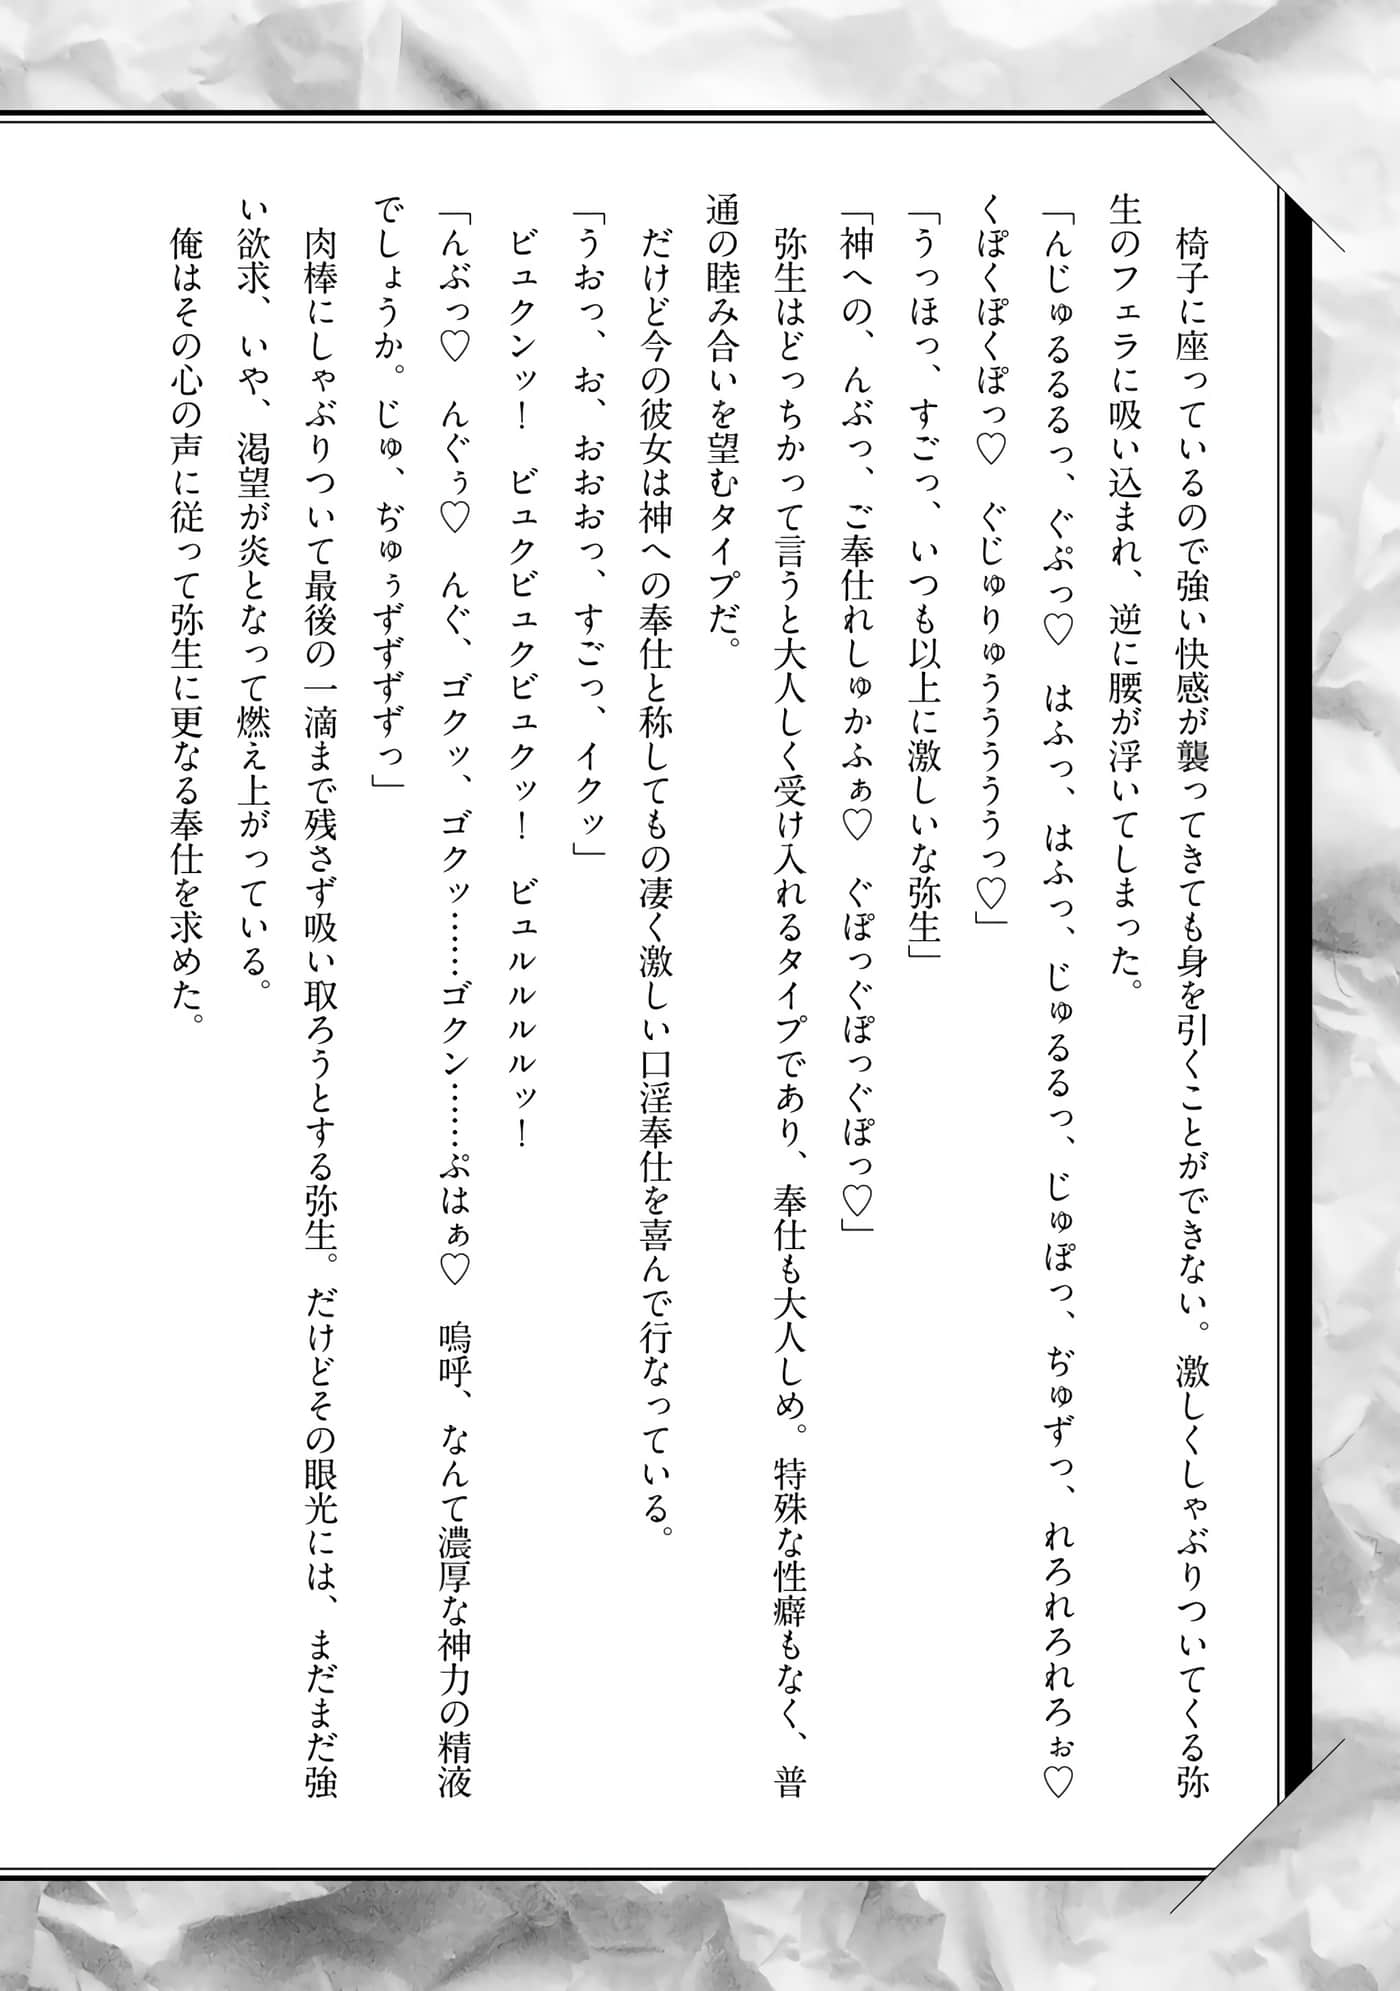 椅子に座っているので強い快感が襲ってきても身を引くことができない。激しくしゃぶりついてくる弥
生のフェラに吸い込まれ、逆に腰が浮いてしまった。
「んじゅるるるっ、ぐぷっ♡　はふっ、はふっ、じゅるるっ、じゅぽっ、ぢゅずっ、れろれろれろぉ♡
くぽくぽくぽっ♡　ぐじゅりゅうううううっ♡」
「うっほっ、すごっ、いつも以上に激しいな弥生」
「神への、んぶっ、ご奉仕れしゅかふぁ♡　ぐぽっぐぽっぐぽっ♡」
弥生はどっちかって言うと大人しく受け入れるタイプであり、奉仕も大人しめ。特殊な性癖もなく、普
通の睦み合いを望むタイプだ。
だけど今の彼女は神への奉仕と称してもの凄く激しい口淫奉仕を喜んで行なっている。
「うおっ、お、おおおっ、すごっ、イクッ」
ビュクンッ！　ビュクビュクビュクッ！　ビュルルルルッ！
「んぶっ♡　んぐぅ♡　んぐ、ゴクッ、ゴクッ……ゴクン……ぷはぁ♡　嗚呼、なんて濃厚な神力の精液
でしょうか。じゅ、ぢゅぅずずずずっ」
肉棒にしゃぶりついて最後の一滴まで残さず吸い取ろうとする弥生。だけどその眼光には、まだまだ強
い欲求、いや、渇望が炎となって燃え上がっている。
俺はその心の声に従って弥生に更なる奉仕を求めた。